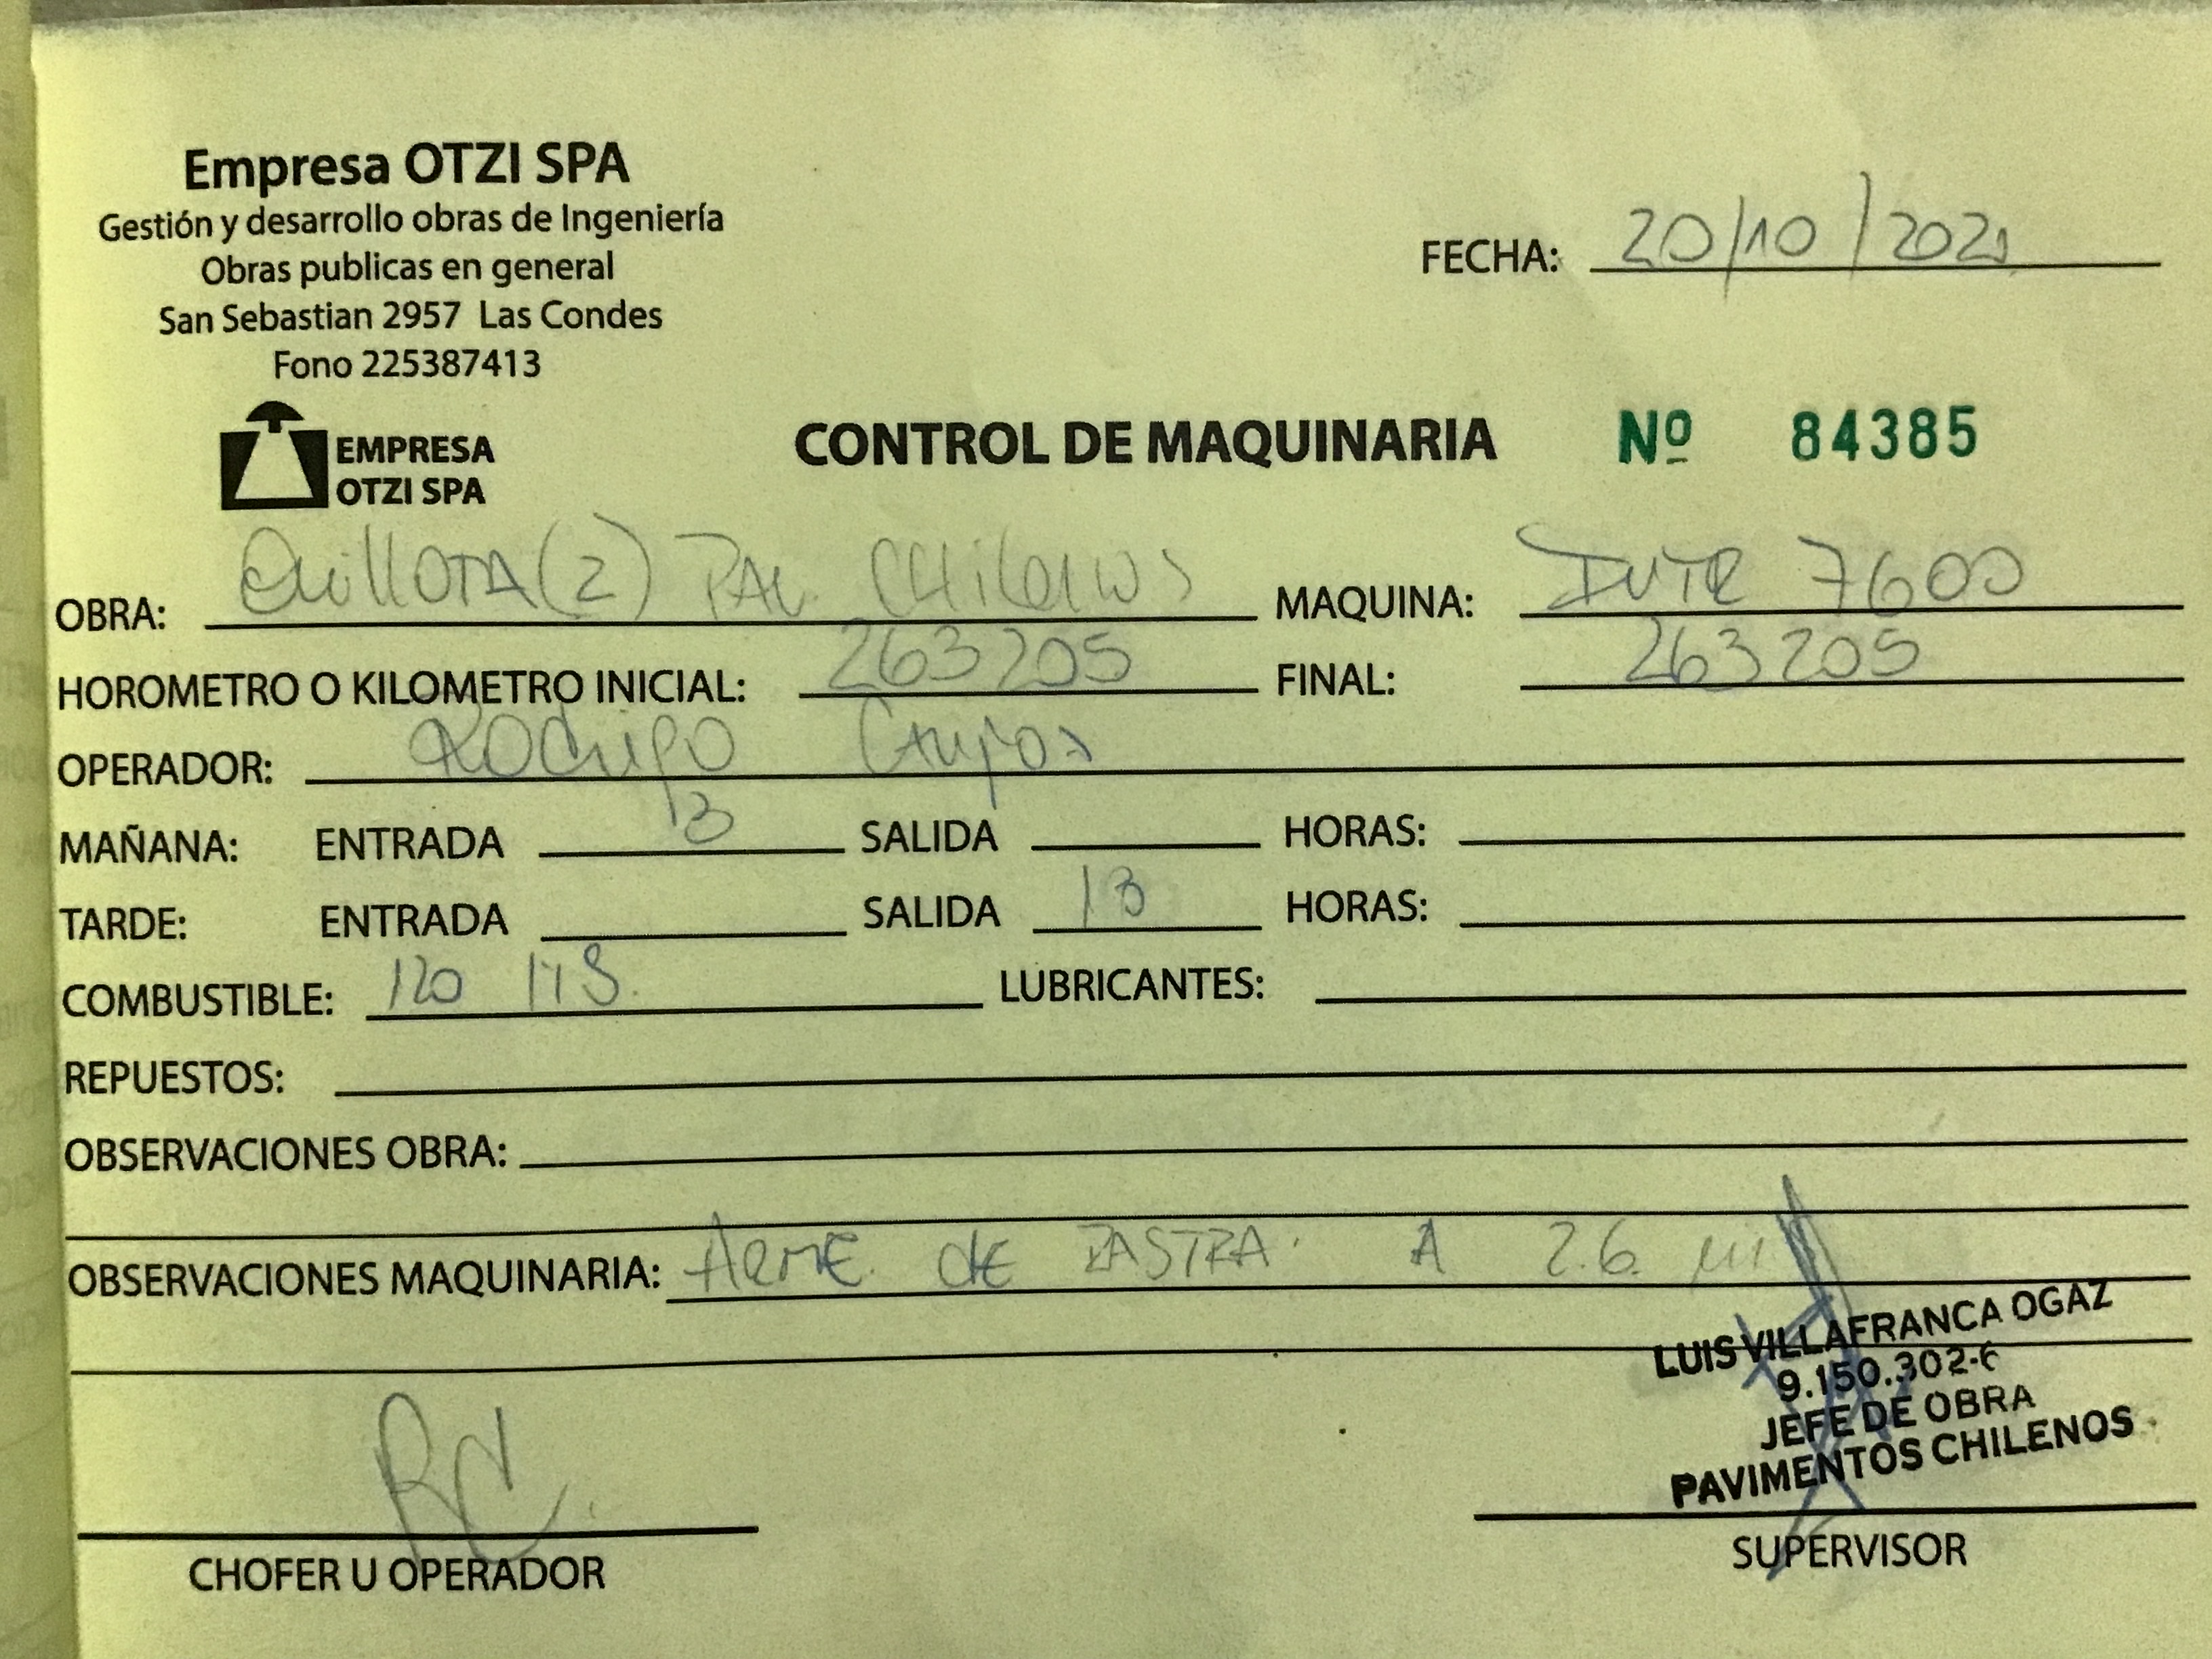 Empresa OTZI SPA
Gestión y desarrollo obras de Ingeniería
Obras publicas en general
San Sebastian 2957 Las Condes
Fono 225387413
FECHA: 20/10/2021
EMPRESA
OTZI SPA
CONTROL DE MAQUINARIA Nº 84385
OBRA: QuillOTA (2) PAV. CHilenos MAQUINA: 7600
HOROMETRO O KILOMETRO INICIAL: 263205 FINAL: 263205
OPERADOR: ROdrigo Campos
MAÑANA: ENTRADA SALIDA HORAS:
TARDE: ENTRADA SALIDA 18 HORAS:
COMBUSTIBLE: 120 lTS. LUBRICANTES:
REPUESTOS:
OBSERVACIONES OBRA:
OBSERVACIONES MAQUINARIA: dE A 2.6
LUIS VILLAFRANCA OGAZ
9.150.302-6
JEFE DE OBRA
PAVIMENTOS CHILENOS
RC.
CHOFER U OPERADOR
SUPERVISOR